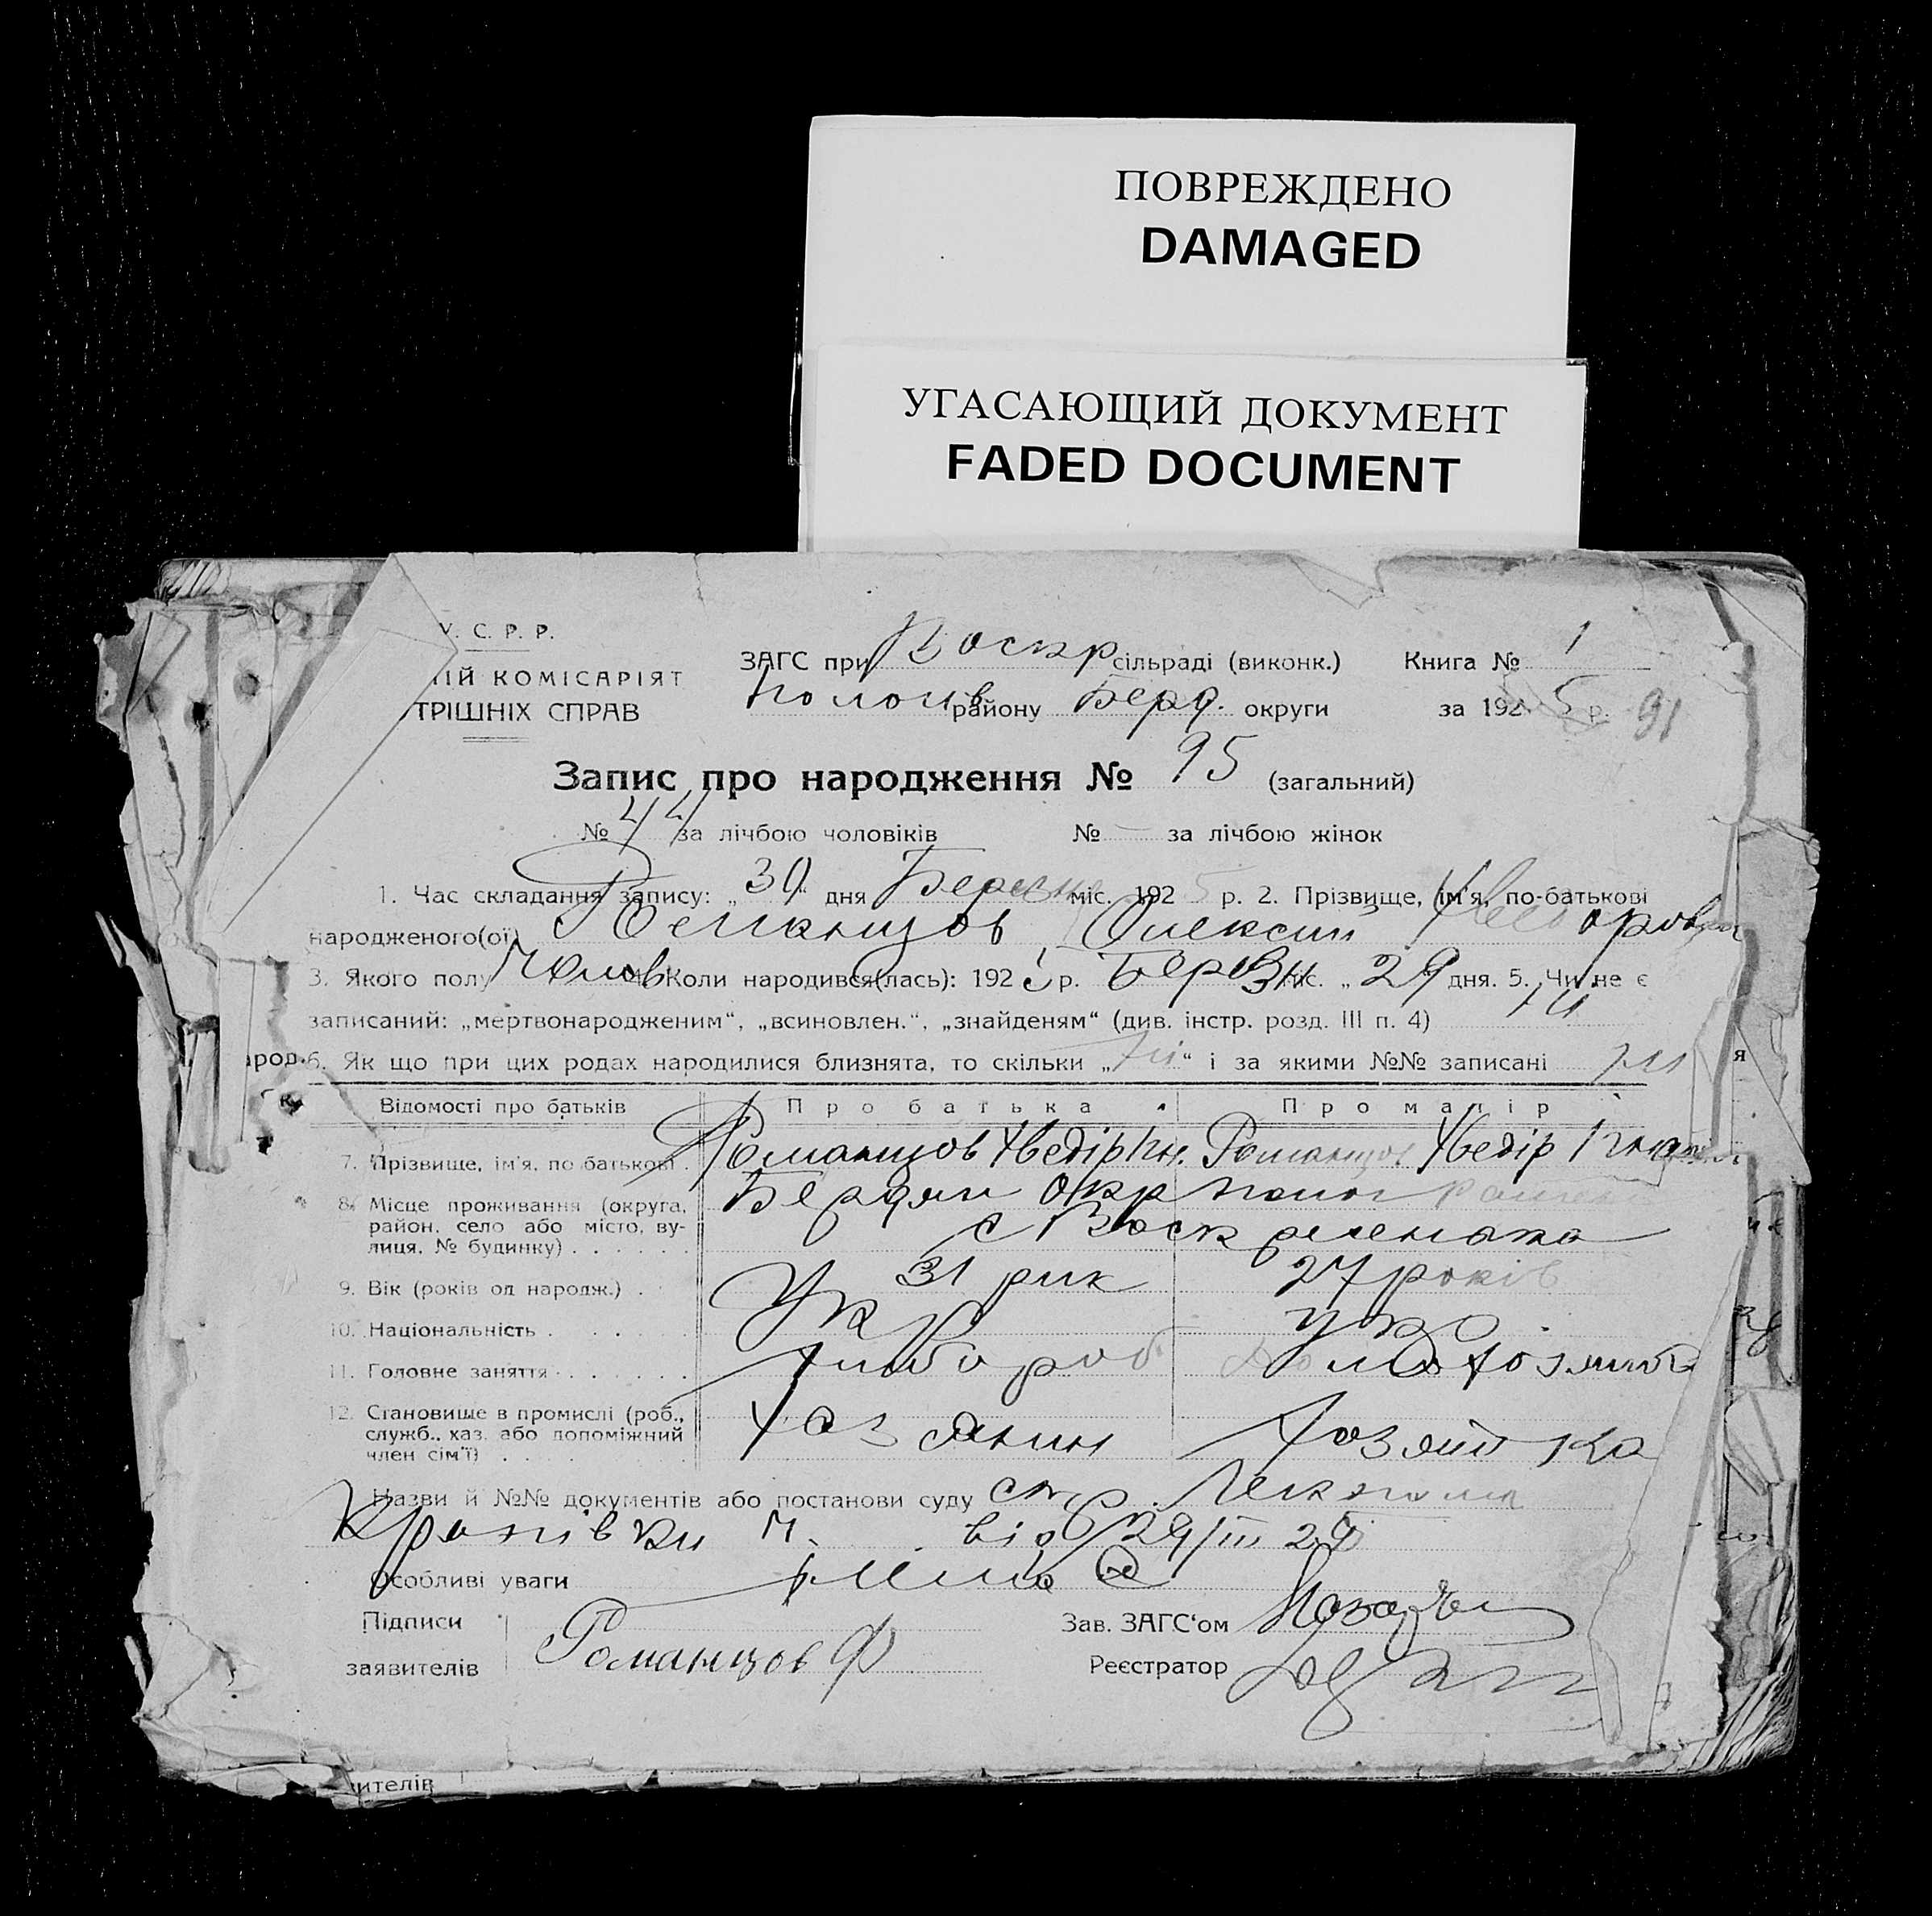 ПОВРЕЖДЕНО
DAMAGED
УГАСАЮЩИЙ ДОКУМЕНТ
FADED DOCUMENT
У. С. Р. Р.
ІЙ КОМІСАРІЯТ
ТРІШНІХ СПРАВ
ЗАГС при Воскр сільраді (виконк.) Книга № 1
району Берд. округи за 1925 р. 91
Запис про народження № 95 (загальний)
№ 44 за лічбою чоловіків № — за лічбою жінок
1. Час складання запису: „30“ дня Березня міс. 1925 р. 2. Прізвище, ім'я, по-батькові
народженого(ої) Романцов Олексій
3. Якого полу Чолов 4. Коли народився(лась): 1925 р. Березн міс. „29 дня. 5. Чи не є
записаний: „мертвонародженим“, „всиновлен.“, „знайденям“ (див. інстр. розд. III п. 4) ні
арод. 6. Як що при цих родах народилися близнята, то скільки „ні“ і за якими №№ записані ні
я
Відомості про батьків Про батька Про матір
7. Прізвище, ім'я, по батькові. Романцов Хведір Ігн. Романцов Хведір Ігнат
8. Місце проживання (округа, район, село або місто, вулиця, № будинку) Бердян окр район
с Воскресенка
9. Вік (років од народж.) 31 рик 27 років
10. Національність Укр укр
11. Головне заняття Хлібороб Домохозяйка
12. Становище в промислі (роб., служб., хаз. або допоміжний член сім'ї) Хазяин Хозяйка
Назви й №№ документів або постанови суду
від 29/III 25
Особливі уваги
Підписи
заявителів Романцов Ф
Зав. ЗАГС'ом
Реєстратор
ителів